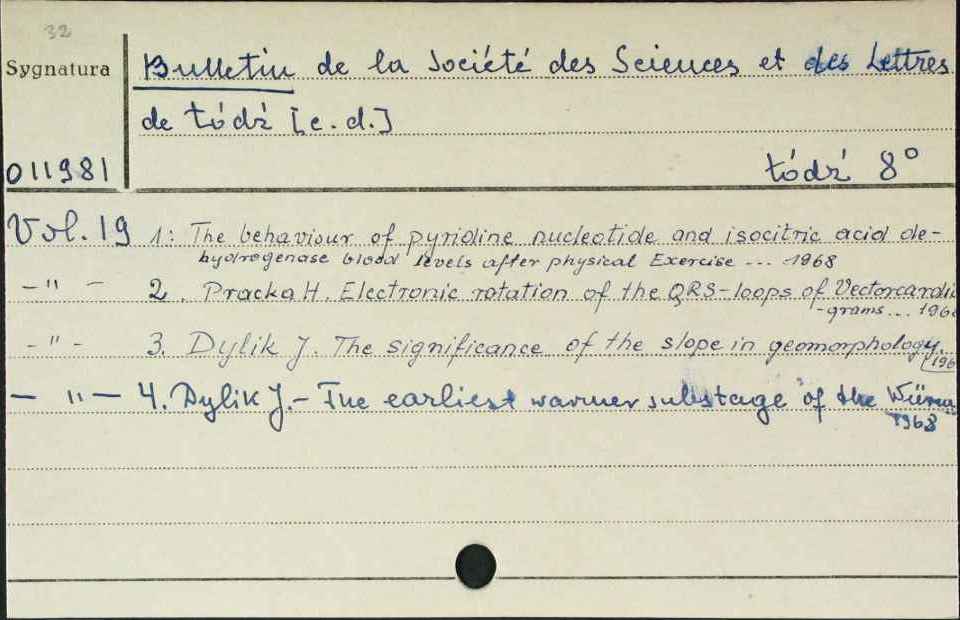 32
Sygnatura
Bulletin de la Société des Sciences et des Lettres
de Łódź [c.d.]
011981
Łódź 8°
Vol. 19 1: The behaviour of pyridine nucleotide and isocitric acid de-
hydrogenase blood levels after physical Exercise ... 1968
-"- 2. Pracka H. Electronic rotation of the QRS-loops of Vectorcardio
-grams... 1968
-"- 3. Dylik J. The significance of the slope in geomorphology.
196
-"- 4. Dylik J. - The earliest warmer substage of the Würm
1968